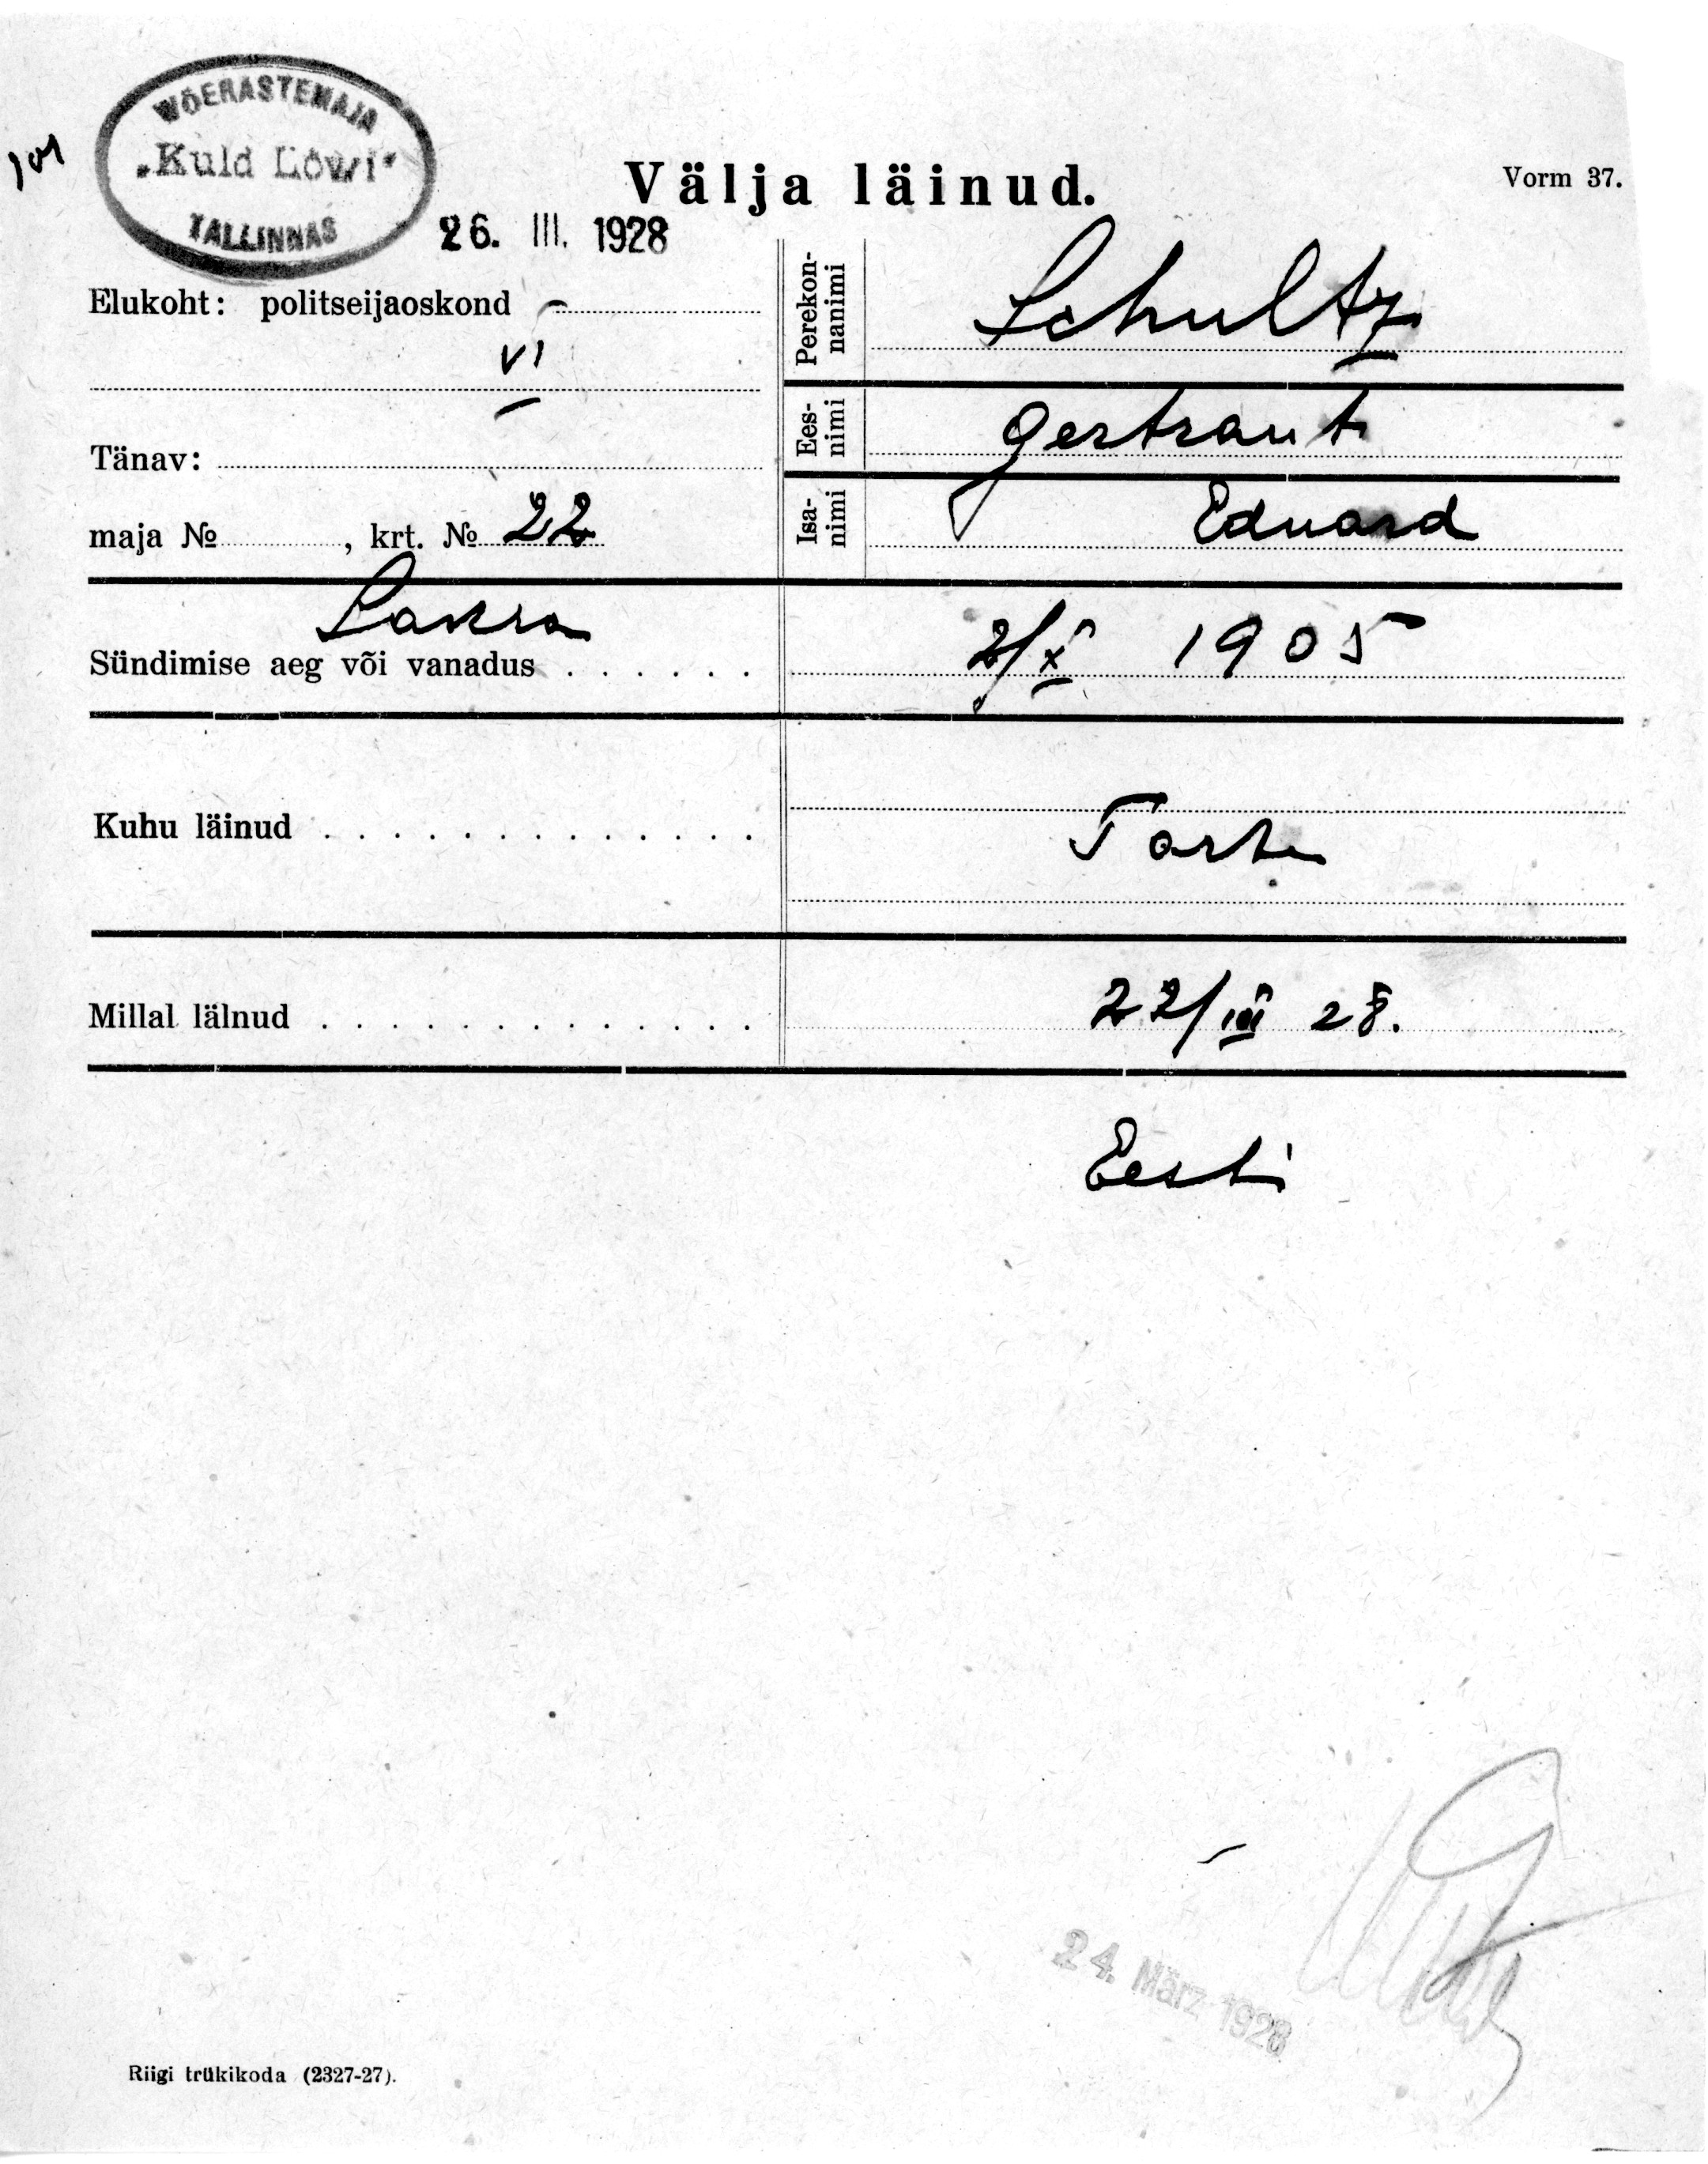 WÕERASTEMAJA
„Kuld Lõwi“
TALLINNAS
26. III. 1928
Välja läinud.
Vorm 37.
Elukoht: politseijaoskond
VI
Tänav:
maja № , krt. № 22
Perekon-
nanimi
Schultz
Ees-
nimi
Gertraut
Isa-
nimi
Eduard
Sündimise aeg või vanadus
2/X 1905
Kuhu läinud
Tartu
Millal läinud
22/III 28.
Eesti
24. März 1928
Riigi trükikoda (2327-27).